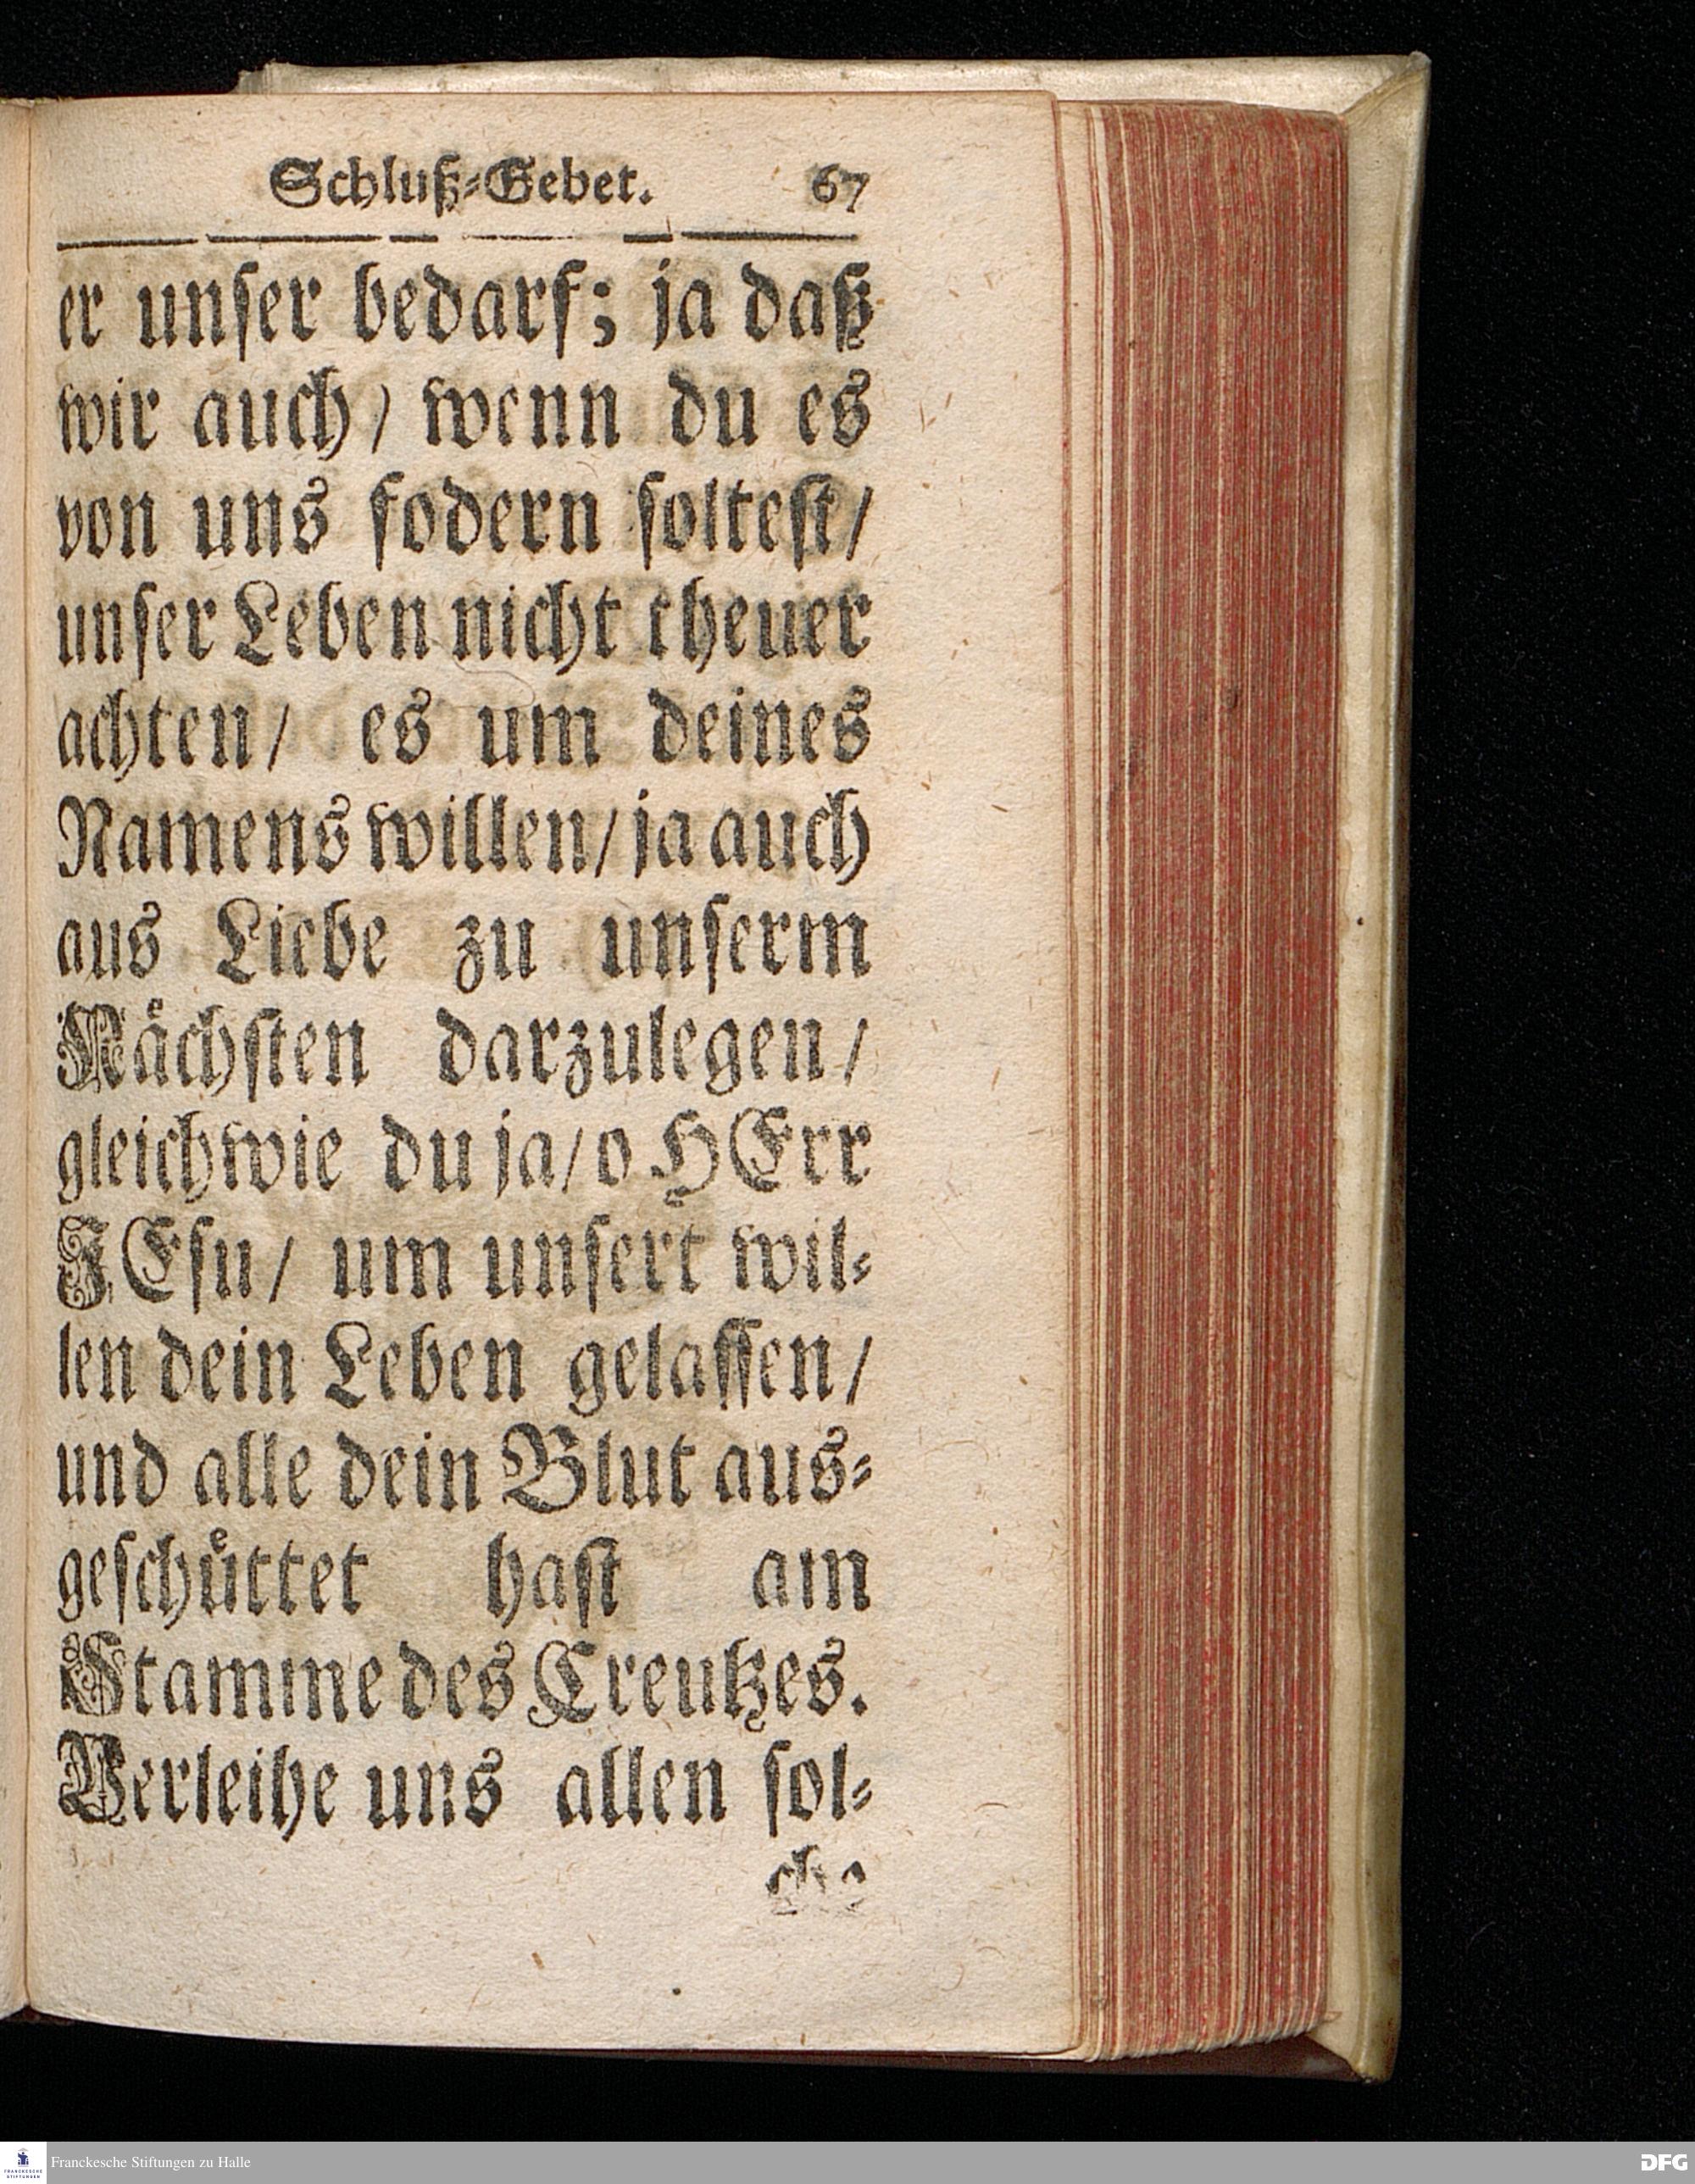 Schluß-Gebet. 67
er unser bedarf; ja daß
wir auch/ wenn du es
von uns fodern soltest/
unser Leben nicht theuer
achten/ es um deines
Namens willen/ ja auch
aus Liebe zu unserm
Nächsten darzulegen/
gleichwie du ja/ o HErr
JEsu/ um unsert wil-
len dein Leben gelassen/
und alle dein Blut aus-
geschüttet hast am
Stamme des Creutzes.
Verleihe uns allen sol-
che
Franckesche Stiftungen zu Halle
DFG